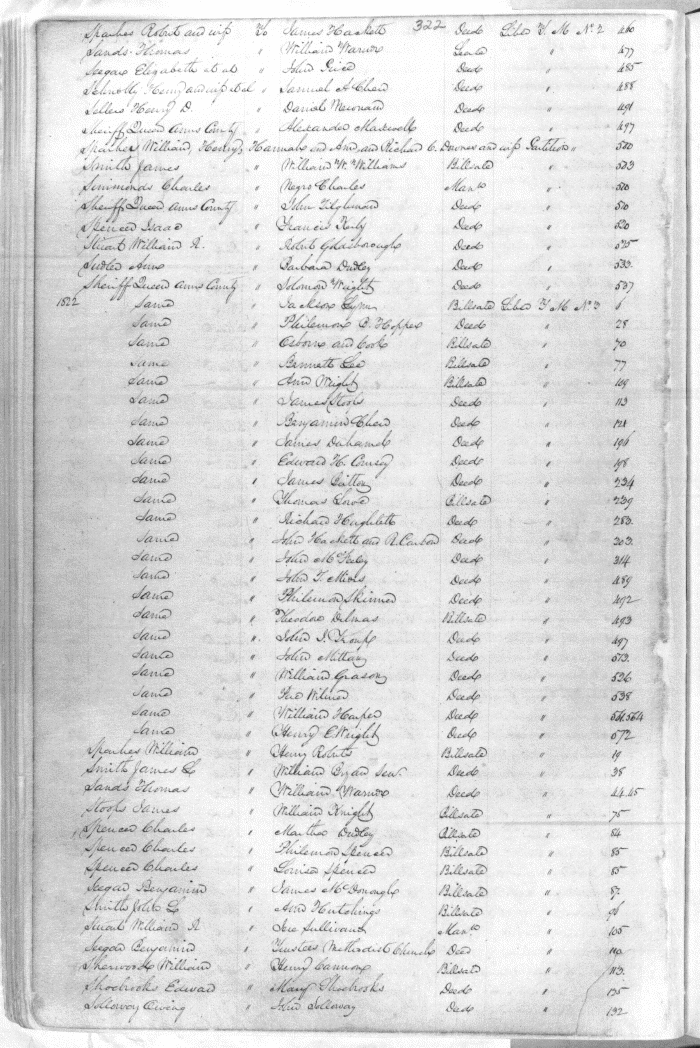 322
Sparkes Robert and wife To James Hackett Deed Liber T. M No 2 460
Sands Thomas " William Warner Lease " 477
Seegar Elizabeth et al " John Deed " 485
Henry and wife et al " Samuel A Chew Deed " 488
Sellers Henry D. " Daniel Deed " 491
Sheriff Queen Anns County " Alexander Maxwell Deed " 497
Sparkes William, Henry, Hannah and Ann, and Richard C. Downes and wife Partition " 500
Smith James " William W. Williams Billsale " 503
Simmonds Charles " Negro Charles Mann " 510
Sheriff Queen Anns County " John Tilghman Deed " 510
Spencer Isaac " Francis Deed " 520
Stuart William R. " Robert Goldsborough Deed " 525
Sudler Anne " Barbara Dudley Deed " 533
Sheriff Queen Anns County " Solomon Wright Deed " 537
1822 Same " Jackson Billsale Liber T M No 3 6
Same " Philemon C. Hopper Deed " 28
Same " Osborne and Cook Billsale " 70
Same " Bennett Lee Billsale " 77
Same " Ann Wright Billsale " 109
Same " James Stoops Deed " 113
Same " Benjamin Chew Deed " 121
Same " James Duhamel Deed " 196
Same " Edward H. Comegy Deed " 198
Same " James Deed " 234
Same " Thomas Billsale " 239
Same " Richard Hughlett Deed " 283
Same " John Hackett and R. Deed " 303
Same " John McFeely Deed " 314
Same " John T. Mivis Deed " 489
Same " Philemon Skinner Deed " 492
Same " Theodore Delmas Billsale " 493
Same " John I. Troup Deed " 497
Same " John Deed " 513
Same " William Grason Deed " 536
Same " Wilmer Deed " 538
Same " William Harper Deed " 564
Same " Henry E Wright Deed " 572
Sparkes William " Henry Roberts Billsale " 19
Smith James C " William Bryan Senr. Deed " 38
Sands Thomas " William Warner Deed " 44.45
Stoops James " William Knight Billsale " 75
Spencer Charles " Martha Dudley Billsale " 84
Spencer Charles " Philemon Spencer Billsale " 85
Spencer Charles " Louisa Spencer Billsale " 85
Seegar Benjamin " James McDonough Billsale " 87
Smith John C " Ann Hutchings Billsale " 96
Stuart William R " Sullivan Mann " 105
Seegar Benjamin " Trustees Methodist Church Deed " 110
Sherwood William " Henry Cannon Billsale " 113
Shoebrooks Edward " Mary Shoebrooks Deed " 135
Solloway " John Solloway Deed " 132